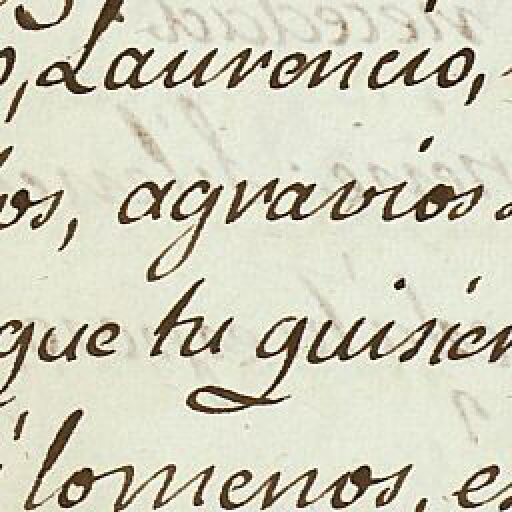 , Laurencio,
os, agravios
que tu quisier
lo menos, es